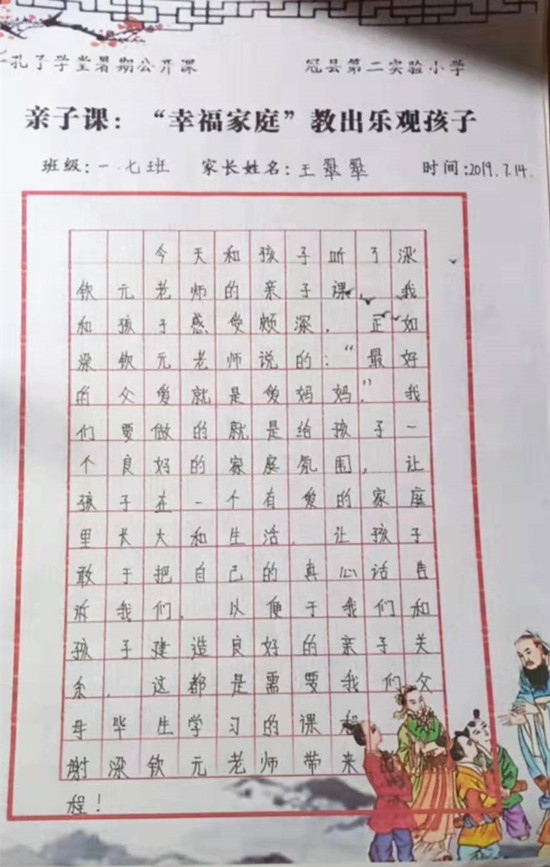 孔子学堂暑期公开课 冠县第二实验小学
亲子课：“幸福家庭”教出乐观孩子
班级：一.七班 家长姓名：王翠翠 时间：2019.7.14.
今天和孩子听了梁
钦元老师的亲子课，我
和孩子感受颇深．正如
梁钦元老师说的：“最好
的父爱就是爱妈妈．”我
们要做的就是给孩子一
个良好的家庭氛围，让
孩子在一个有爱的家庭
里长大和生活，让孩子
敢于把自己的真心话告
诉我们．以便于我们和
孩子建造良好的亲子关
系．这都是需要我们父
母毕生学习的课程
谢梁钦元老师带来
程！